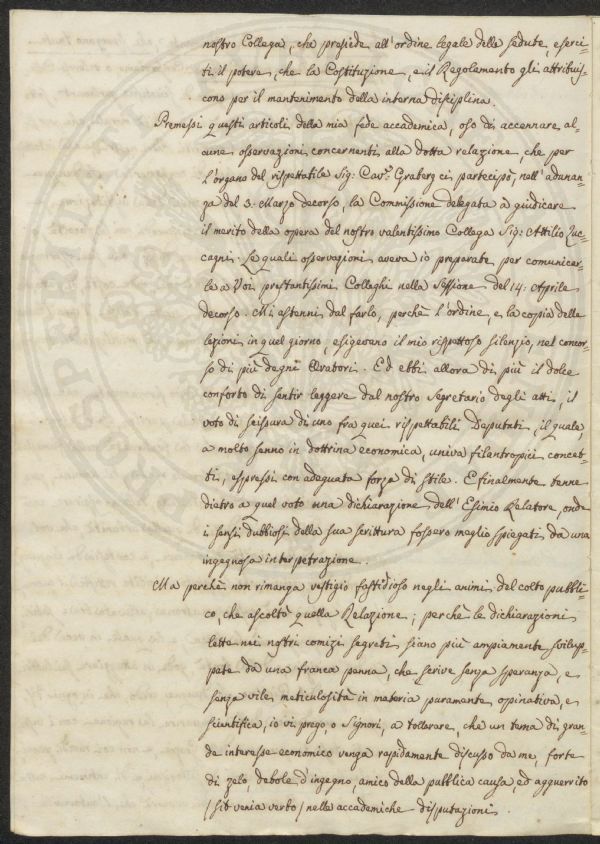 nostro Collega, che presiede all'ordine legale delle sedute, eserci-
ti il potere, che la Costituzione, e il Regolamento gli attribuis-
cono per il mantenimento della interna disciplina.
Premessi questi articoli della mia fede accademica, oso di accennare al-
cune osservazioni concernenti alla dotta relazione, che per
l'organo del rispettabile Sig: Cav.e Graberg ci partecipò, nell'adunan-
za del 3. Marzo decorso, la Commissione delegata a giudicare
il merito della opera del nostro valentissimo Collega Sig: Attilio Zuc-
cagni. Le quali osservazioni aveva io preparate per comunicar-
le a Voi prestantissimi Colleghi nella Sessione del 14: Aprile
decorso. Mi astenni dal farlo, perchè l'ordine, e la copia delle
lezioni in quel giorno, esigevano il mio rispettoso silenzio, nel concor-
so di più degni Oratori. Ed ebbi allora di più il dolce
conforto di sentir leggere dal nostro Segretario degli atti, il
voto di scissura di uno fra quei rispettabili Deputati, il quale,
a molto senno in dottrina economica, univa filantropici concet-
ti, espressi con adeguata forza di stile. E finalmente tenne
dietro a quel voto una dichiarazione dell'Esimio Relatore, onde
i sensi dubbiosi della sua scrittura fossero meglio spiegati da una
ingegnosa interpetrazione.
Ma perchè non rimanga vestigio fastidioso negli animi del colto pubbli-
co, che ascoltò quella Relazione; perchè le dichiarazioni
lette nei nostri comizi segreti siano più ampiamente svilup-
pate da una franca penna, che scrive senza speranza, e
senza vile meticulosità in materia puramente opinativa, e
scientifica, io vi prego, o Signori, a tollerare, che un tema di gran-
de interesse economico venga rapidamente discusso da me, forte
di zelo, debole d'ingegno, amico della pubblica causa, ed agguerrito
/sit venia verbo/ nelle accademiche disputazioni.